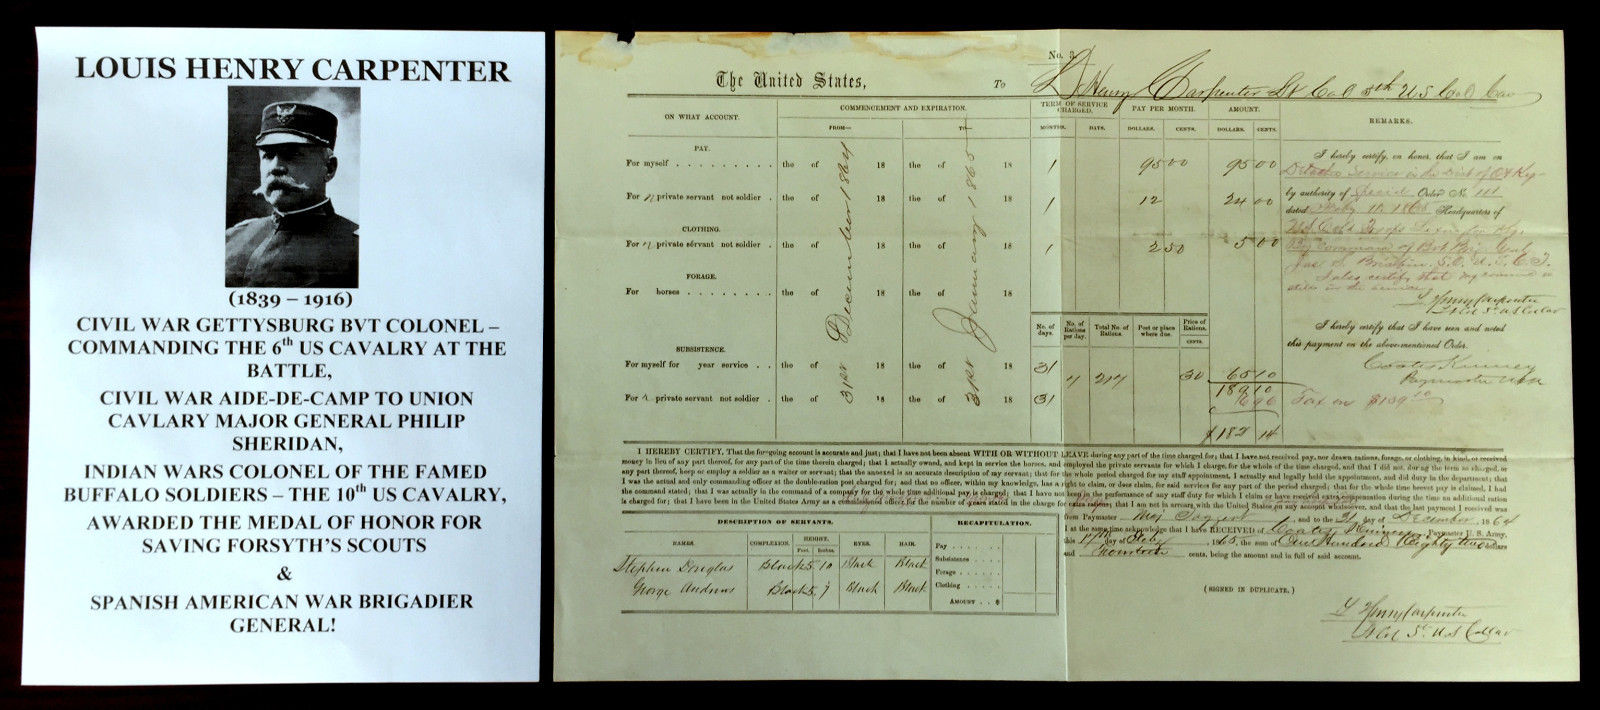 LOUIS HENRY CARPENTER
(1839 – 1916)
CIVIL WAR GETTYSBURG BVT COLONEL –
COMMANDING THE 6th US CAVALRY AT THE
BATTLE,
CIVIL WAR AIDE-DE-CAMP TO UNION
CAVLARY MAJOR GENERAL PHILIP
SHERIDAN,
INDIAN WARS COLONEL OF THE FAMED
BUFFALO SOLDIERS – THE 10th US CAVALRY,
AWARDED THE MEDAL OF HONOR FOR
SAVING FORSYTH'S SCOUTS
&
SPANISH AMERICAN WAR BRIGADIER
GENERAL!
No. 3.
The United States, To L Henry Carpenter Lt Col 5th US Col Cav
ON WHAT ACCOUNT.
COMMENCEMENT AND EXPIRATION.
TERM OF SERVICE CHARGED.
PAY PER MONTH.
AMOUNT.
REMARKS.
FROM— TO—
MONTHS. DAYS. DOLLARS. CENTS. DOLLARS. CENTS.
PAY.
For myself the of 18 the of 18 1 95 00 95 00
For 2 private servant not soldier the of 18 the of 18 1 12 24 00
CLOTHING.
For 2 private servant not soldier the of 18 the of 18 1 2 50 5 00
FORAGE.
For horses the of 18 the of 18
31st December 1864
31st January 1865
No. of days. No. of Rations per day. Total No. of Rations. Post or place where due. Price of Rations. CENTS.
SUBSISTENCE.
For myself for year service the of 18 the of 18 31 7 217 30 65 10
189 10
For 2 private servant not soldier the of 18 the of 18 31 6 96
$182 14
I hereby certify, on honor, that I am on
Detached Service in the Dist of
by authority of Special Order No
dated Headquarters of
I also certify that my
L Henry Carpenter
Lt Col 5th US Col Cav
I hereby certify that I have seen and noted
this payment on the above-mentioned Order.
Coates Kinney
Paymaster USA
Tax on $139 10
I HEREBY CERTIFY, That the foregoing account is accurate and just; that I have not been absent WITH OR WITHOUT LEAVE during any part of the time charged for; that I have not received pay, nor drawn rations, forage, or clothing, in kind, or received
money in lieu of any part thereof, for any part of the time therein charged; that I actually owned, and kept in service the horses, and employed the private servants for which I charge, for the whole of the time charged, and that I did not, during the term so charged, or
any part thereof, keep or employ a soldier as a waiter or servant; that the annexed is an accurate description of my servant; that for the whole period charged for my staff appointment, I actually and legally held the appointment, and did duty in the department; that
I was the actual and only commanding officer at the double-ration post charged for; and that no officer, within my knowledge, has a right to claim, or does claim, for said services for any part of the period charged; that for the whole time brevet pay is claimed, I had
the command stated; that I was actually in the command of a company for the whole time additional pay is charged; that I have not been in the performance of any staff duty for which I claim or have received extra compensation during the time an additional ration
is charged for; that I have been in the United States Army as a commissioned officer for the number of years stated in the charge for extra rations; that I am not in arrears with the United States on any account whatsoever, and that the last payment I received was
from Paymaster Maj Sargent, and to the 31 day of December, 1864
I at the same time acknowledge that I have RECEIVED of Coates Kinney Paymaster U. S. Army,
this 17th day of Feby, 1865, the sum of One Hundred Eighty two dollars
and Fourteen cents, being the amount and in full of said account.
DESCRIPTION OF SERVANTS.
NAMES. COMPLEXION. HEIGHT. Feet. Inches. EYES. HAIR.
Stephen Douglas Black 5 10 Black Black
George Andrews Black 5 7 Black Black
RECAPITULATION.
Pay
Subsistence
Forage
Clothing
AMOUNT $
(SIGNED IN DUPLICATE.)
L Henry Carpenter
Lt Col 5th U S Col Cav